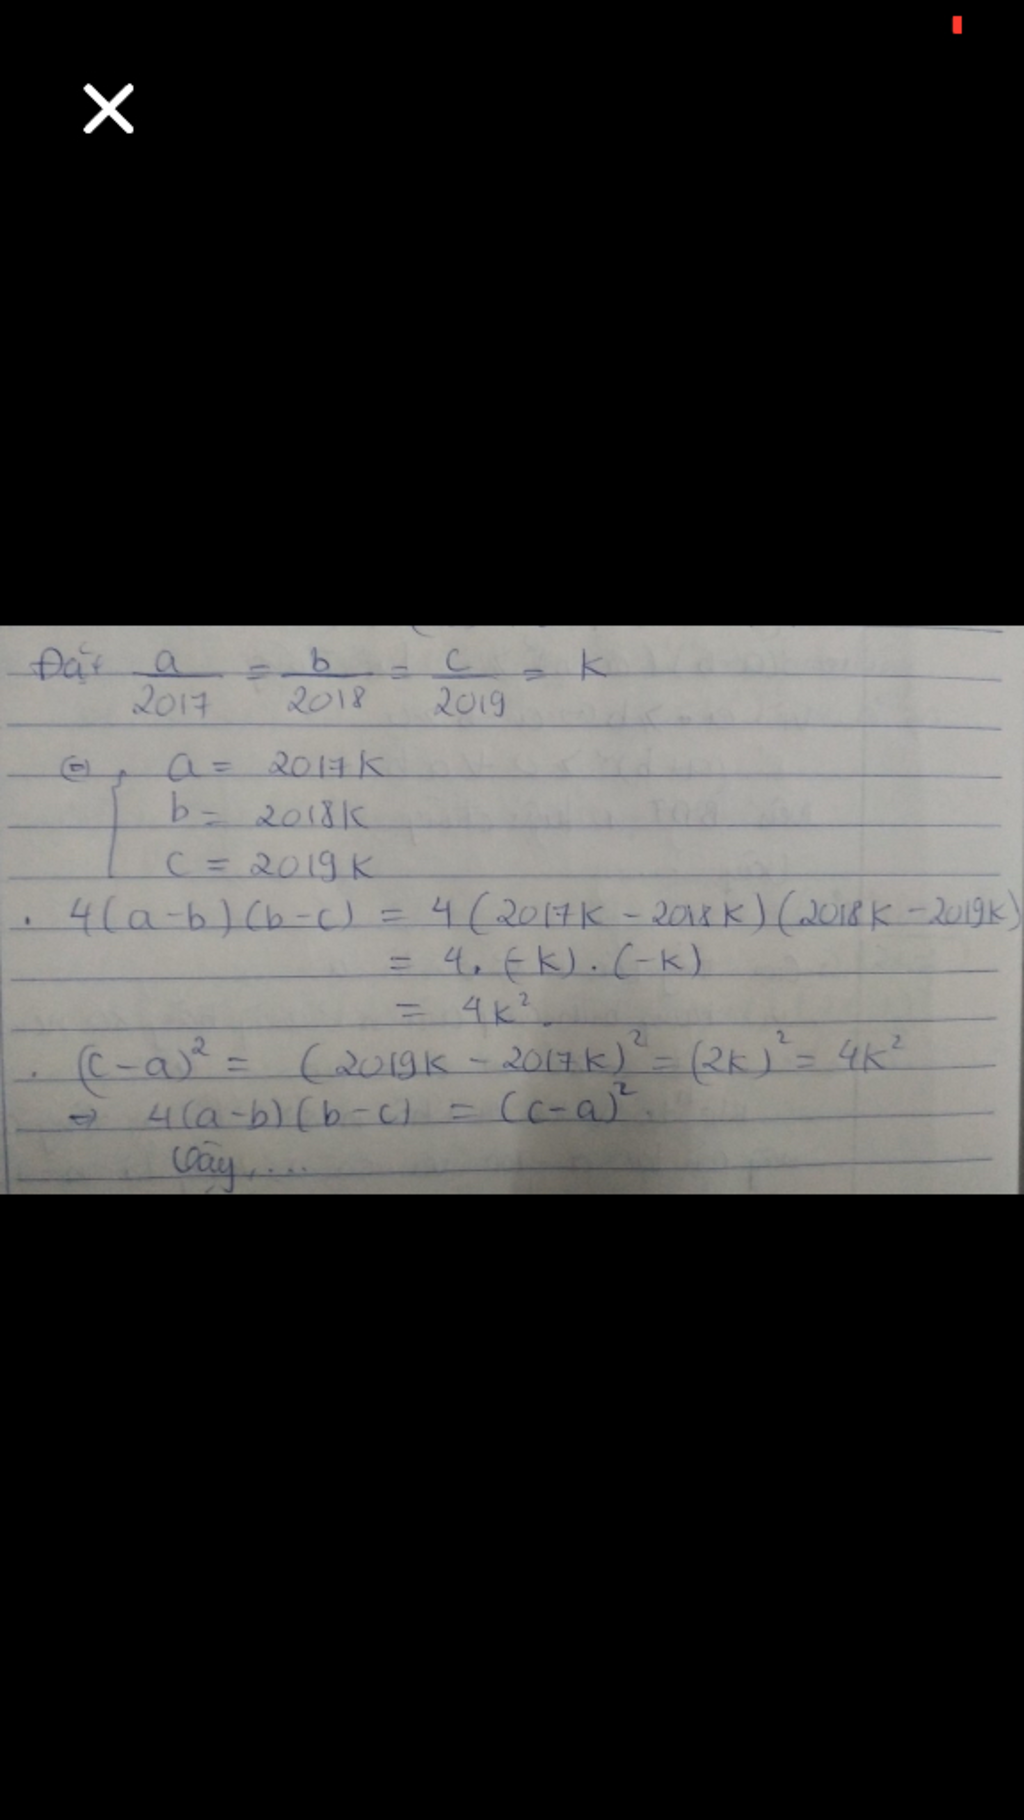 Đặt a/2017 = b/2018 = c/2019 = k
⇔ { a = 2017k
b = 2018k
c = 2019k
. 4(a-b)(b-c) = 4(2017k - 2018k)(2018k - 2019k)
= 4.(-k).(-k)
= 4k².
. (c-a)² = (2019k - 2017k)² = (2k)² = 4k²
⇒ 4(a-b)(b-c) = (c-a)².
Vậy,...